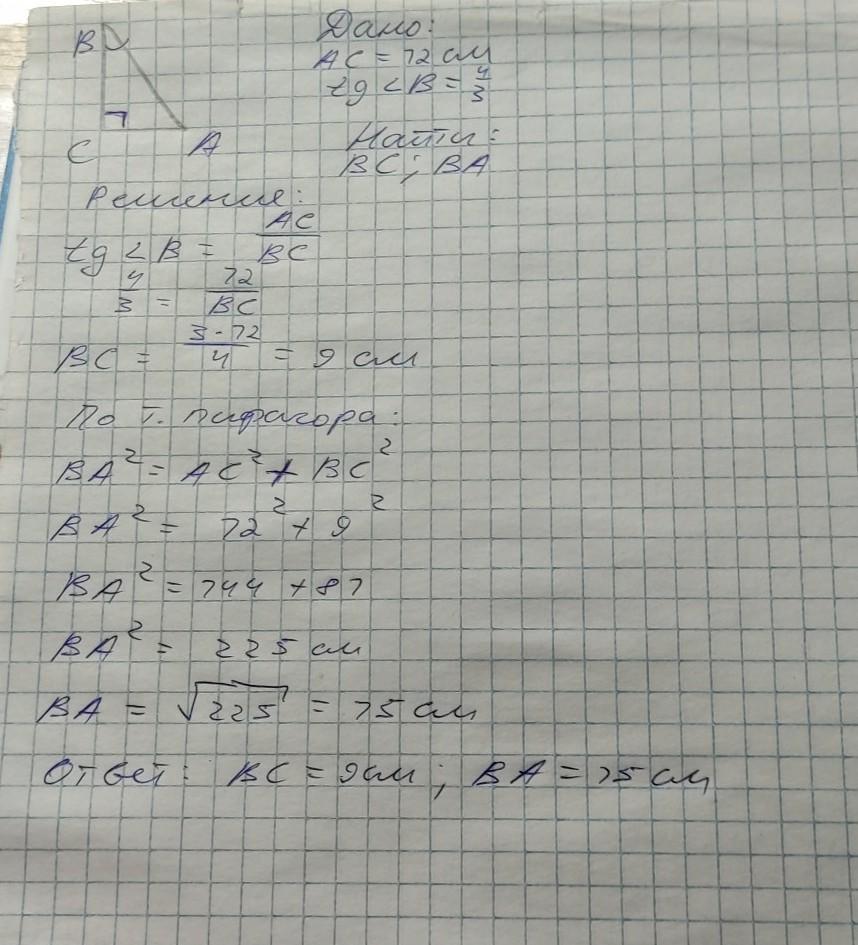 Дано:
AC = 12 см
tg <B = 4/3
B
C A
Найти:
BC; BA
Решение:
tg <B = AC/BC
4/3 = 12/BC
BC = 3·12/4 = 9 см
По т. пифагора:
BA² = AC² + BC²
BA² = 12² + 9²
BA² = 144 + 81
BA² = 225 см
BA = √225 = 15 см
Ответ: BC = 9см; BA = 15 см